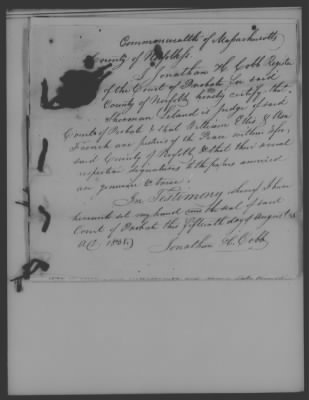 Commonwealth of Massachusetts
County of Norfolk ss.
Jonathan H. Cobb Register
of the Court of Probate for said
County of Norfolk, hereby certify that
Sherman Leland is Judge of said
Court of Probate & that William Ellis &
French are Justices of the Peace within &for
said County of Norfolk & that their several
respective signatures to the papers annexed
are genuine & true.
In Testimony whereof I have
hereunto set my hand and the seal of said
Court of Probate this fifteenth day of August
Jonathan H. Cobb